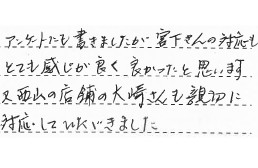 アンケートにも書きましたが宮下さんの対応も
とても感じが良く良かったと思います
又西山の店舗の大崎さんも親切に
対応していただきました